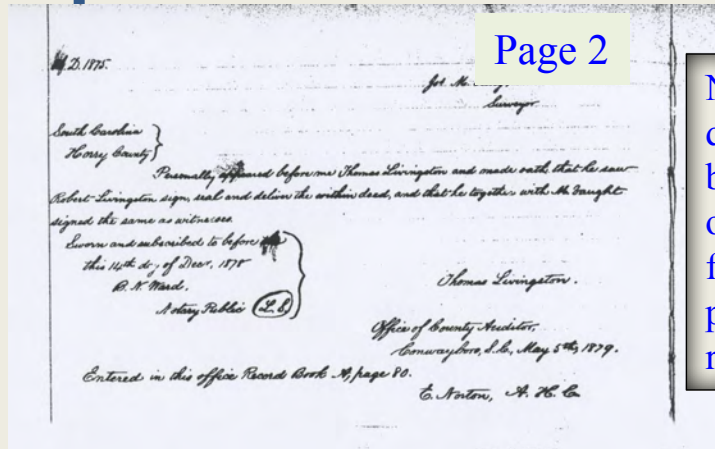 Page 2
D. 1875.
Jos. M.
Surveyor
South Carolina
Horry County
Personally appeared before me Thomas Livingston and made oath, that he saw
Robert Livingston sign, seal and deliver the within deed, and that he together with M. Vaught
signed the same as witnesses.
Sworn and subscribed to before
this 14th day of Dec., 1878
B. N. Ward,
Notary Public (L.S.)
Thomas Livingston.
Office of County Auditor,
Conwayboro, S.C., May 5th, 1879.
Entered in this office Record Book A, page 80.
E. Norton, A. H. C.